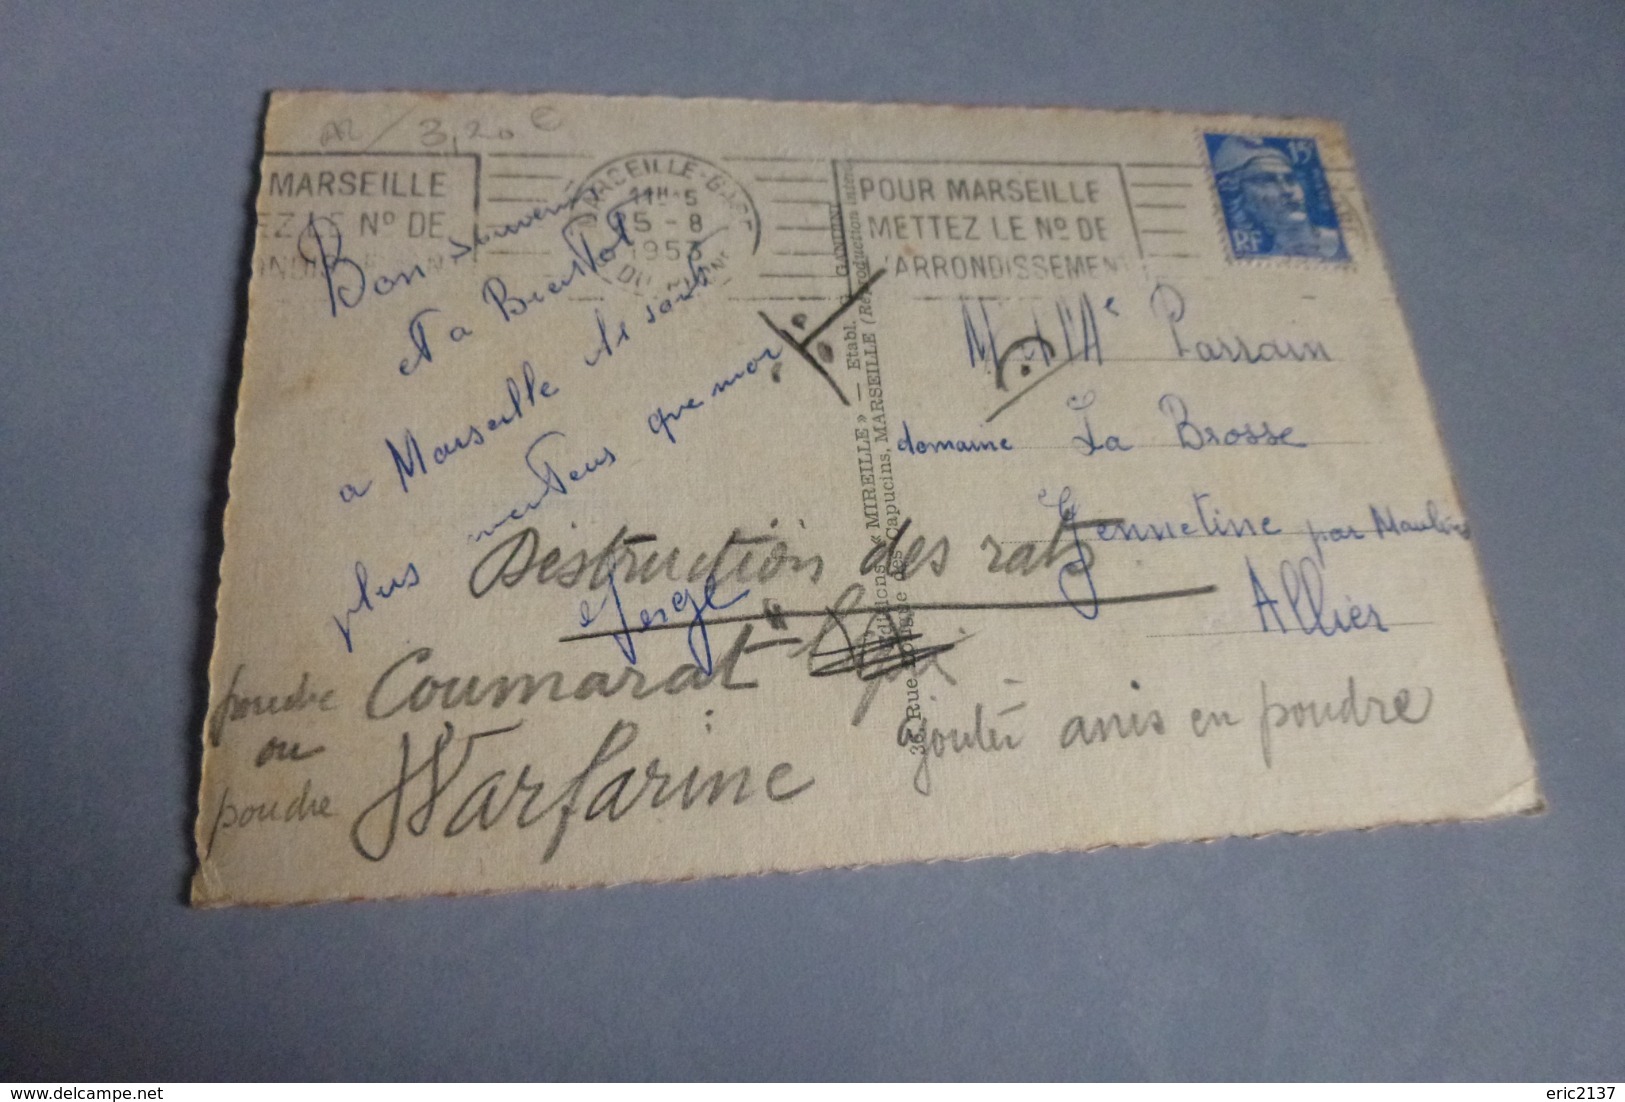 A2 / 3,20 €
MARSEILLE
EZ LE Nº DE
MARSEILLE-GARE
11H 5
15-8
1953
POUR MARSEILLE
METTEZ LE Nº DE
L'ARRONDISSEMENT
15F
RF
Bon souvenir
et a Bientot
a Marseille
plus menteus que moi
Serge
Editions « MIREILLE » — Etabl. GANDINI
36, Rue Longue des Capucins, MARSEILLE (Reproduction interdite
Parrain
domaine La Brosse
Gennetine par Moulins
Allier
Destruction des rats
poudre Coumarat
ou
poudre Warfarine
ajouter anis en poudre
eric2137